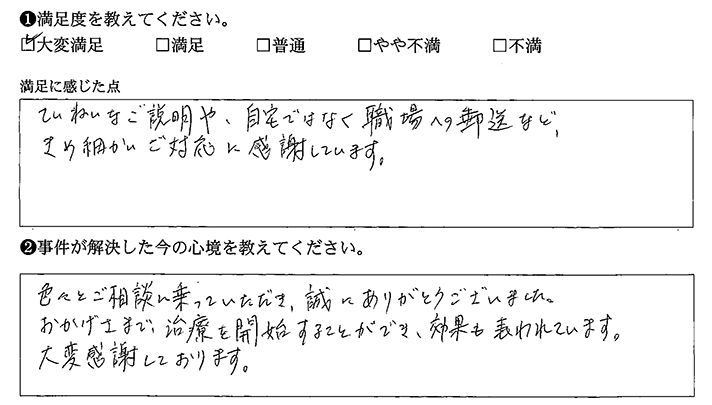 ❶満足度を教えてください。
☑大変満足 □満足 □普通 □やや不満 □不満
満足に感じた点
ていねいなご説明や、自宅ではなく職場への郵送など、
きめ細かいご対応に感謝しています。
❷事件が解決した今の心境を教えてください。
色々とご相談に乗っていただき、誠にありがとうございました。
おかげさまで、治療を開始することができ、効果も表われています。
大変感謝しております。